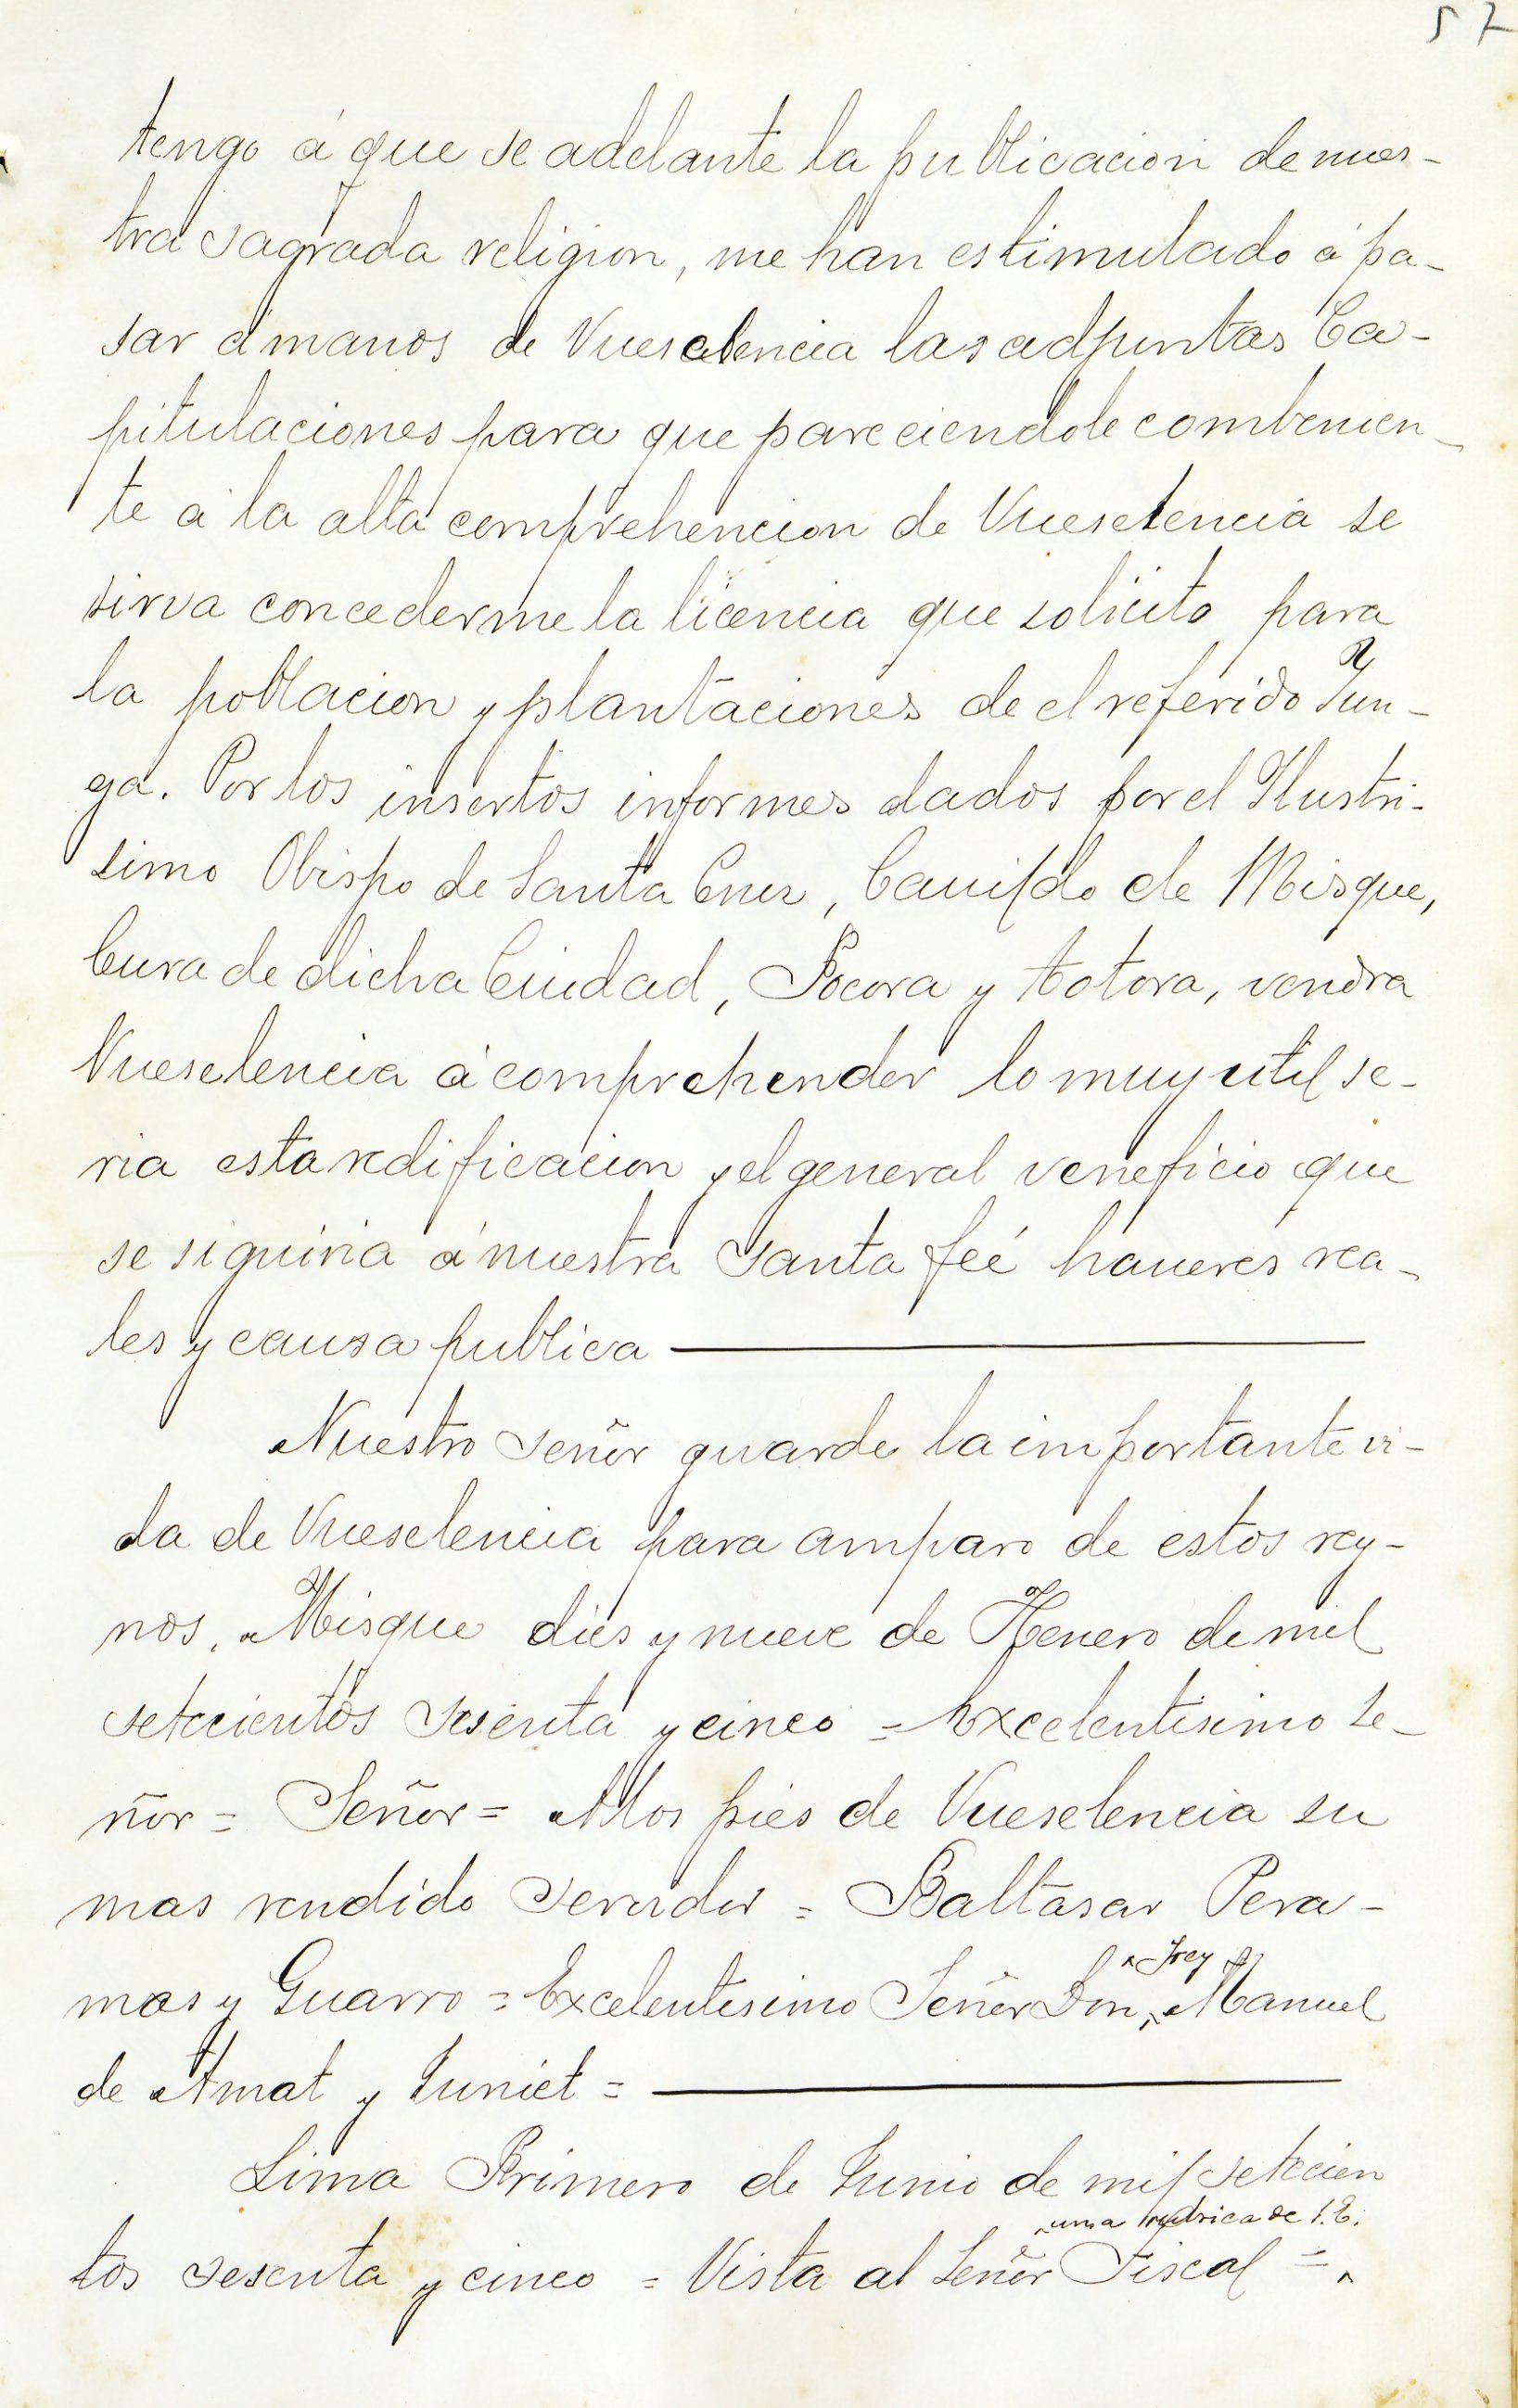 57
tengo á que se adelante la publicacion de nues-
tra sagrada religion, me han estimulado á pa-
sar á manos de Vueselencia las adjuntas Ca-
pitulaciones para que pareciendole combenien-
te á la alta comprehencion de Vueselencia se
sirva concederme la licencia que solicito para
la poblacion y plantaciones de el referido Yun-
ga. Por los insertos informes dados por el Ilustri-
simo Obispo de Santa Cruz, Cauildo de Misque,
Cura de dicha Ciudad, Pocona y Totora, vendra
Vueselencia á comprehender lo muy util se-
ria esta redificacion y el general veneficio que
se siguiria á nuestra Santa feé haueres rea-
les y causa publica
Nuestro Señor guarde la importante vi-
da de Vueselencia para amparo de estos rey-
nos. Misque dies y nueve de Henero de mil
setecientos sesenta y cinco = Excelentisimo Se-
ñor = Señor = A los pies de Vueselencia su
mas rendido servidor = Baltasar Pera-
mas y Guarro = Excelentisimo Señor Don ^Frey Manuel
de Amat y Juniet =
Lima Primero de Junio de mil setecien
tos sesenta y cinco = Vista al Señor Fiscal = ^una rubrica de S.E.